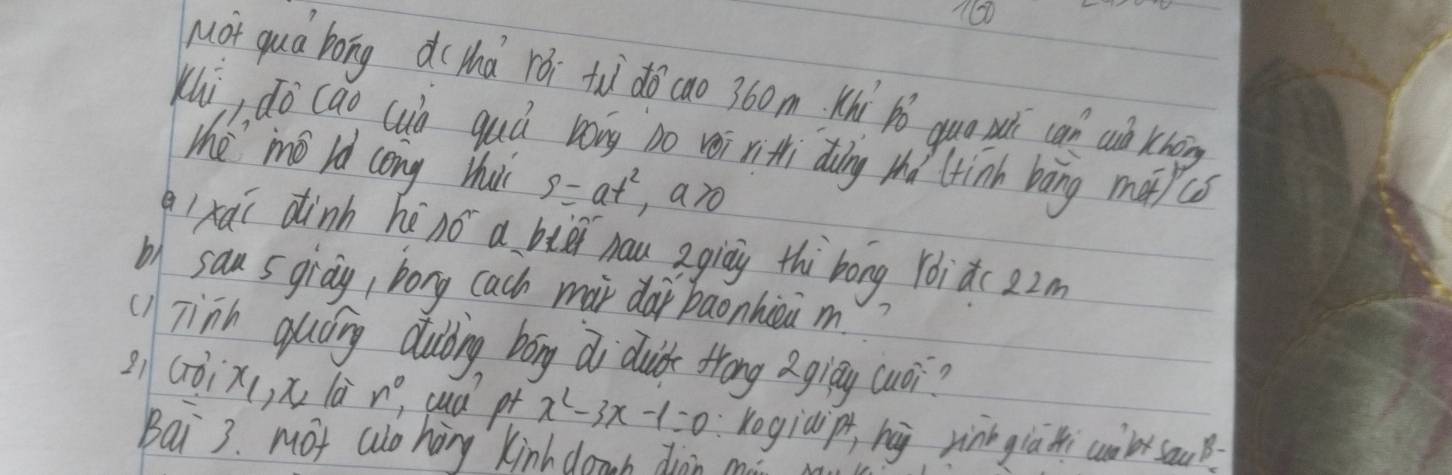 160
Một quả bóng đc thả rơi từ độ cao 360m. Khi bỏ qua sức cản của không
khí, độ cao của quả bóng so với vị trí đứng thả (tính bằng mét) có
thể mô tả công thức s = at², a>0
a) xác định hệ số a biết sau 2 giây thì bóng rơi đc 22m
b) sau 5 giây, bóng cách mặt đất bao nhiêu m?
c) Tính quãng đường bóng đi được trong 2 giây cuối?
2) Gọi x₁, x₂ là n⁰, của pt x² - 3x - 1 = 0: ko giải pt, hãy tính giá trị của bt sau B =
Bài 3. Một cửa hàng kinh doanh điện máy